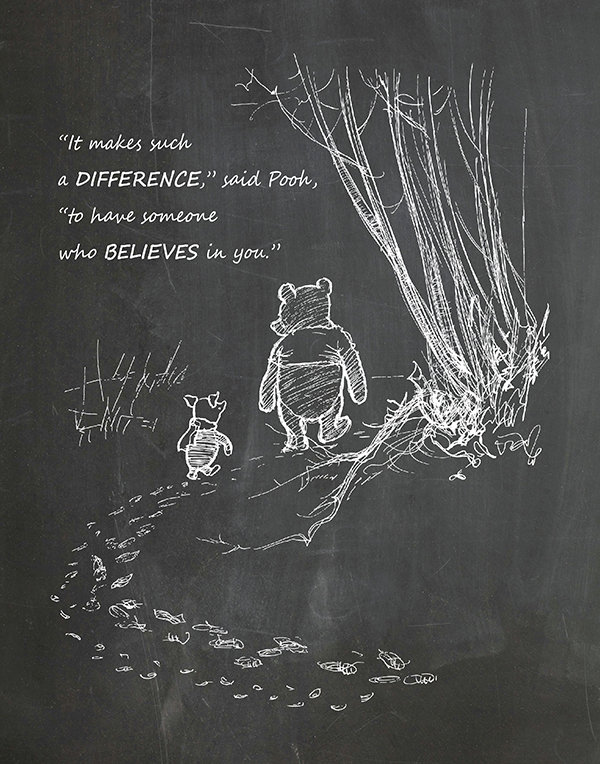 “It makes such
a DIFFERENCE,” said Pooh,
“to have someone
who BELIEVES in you.”